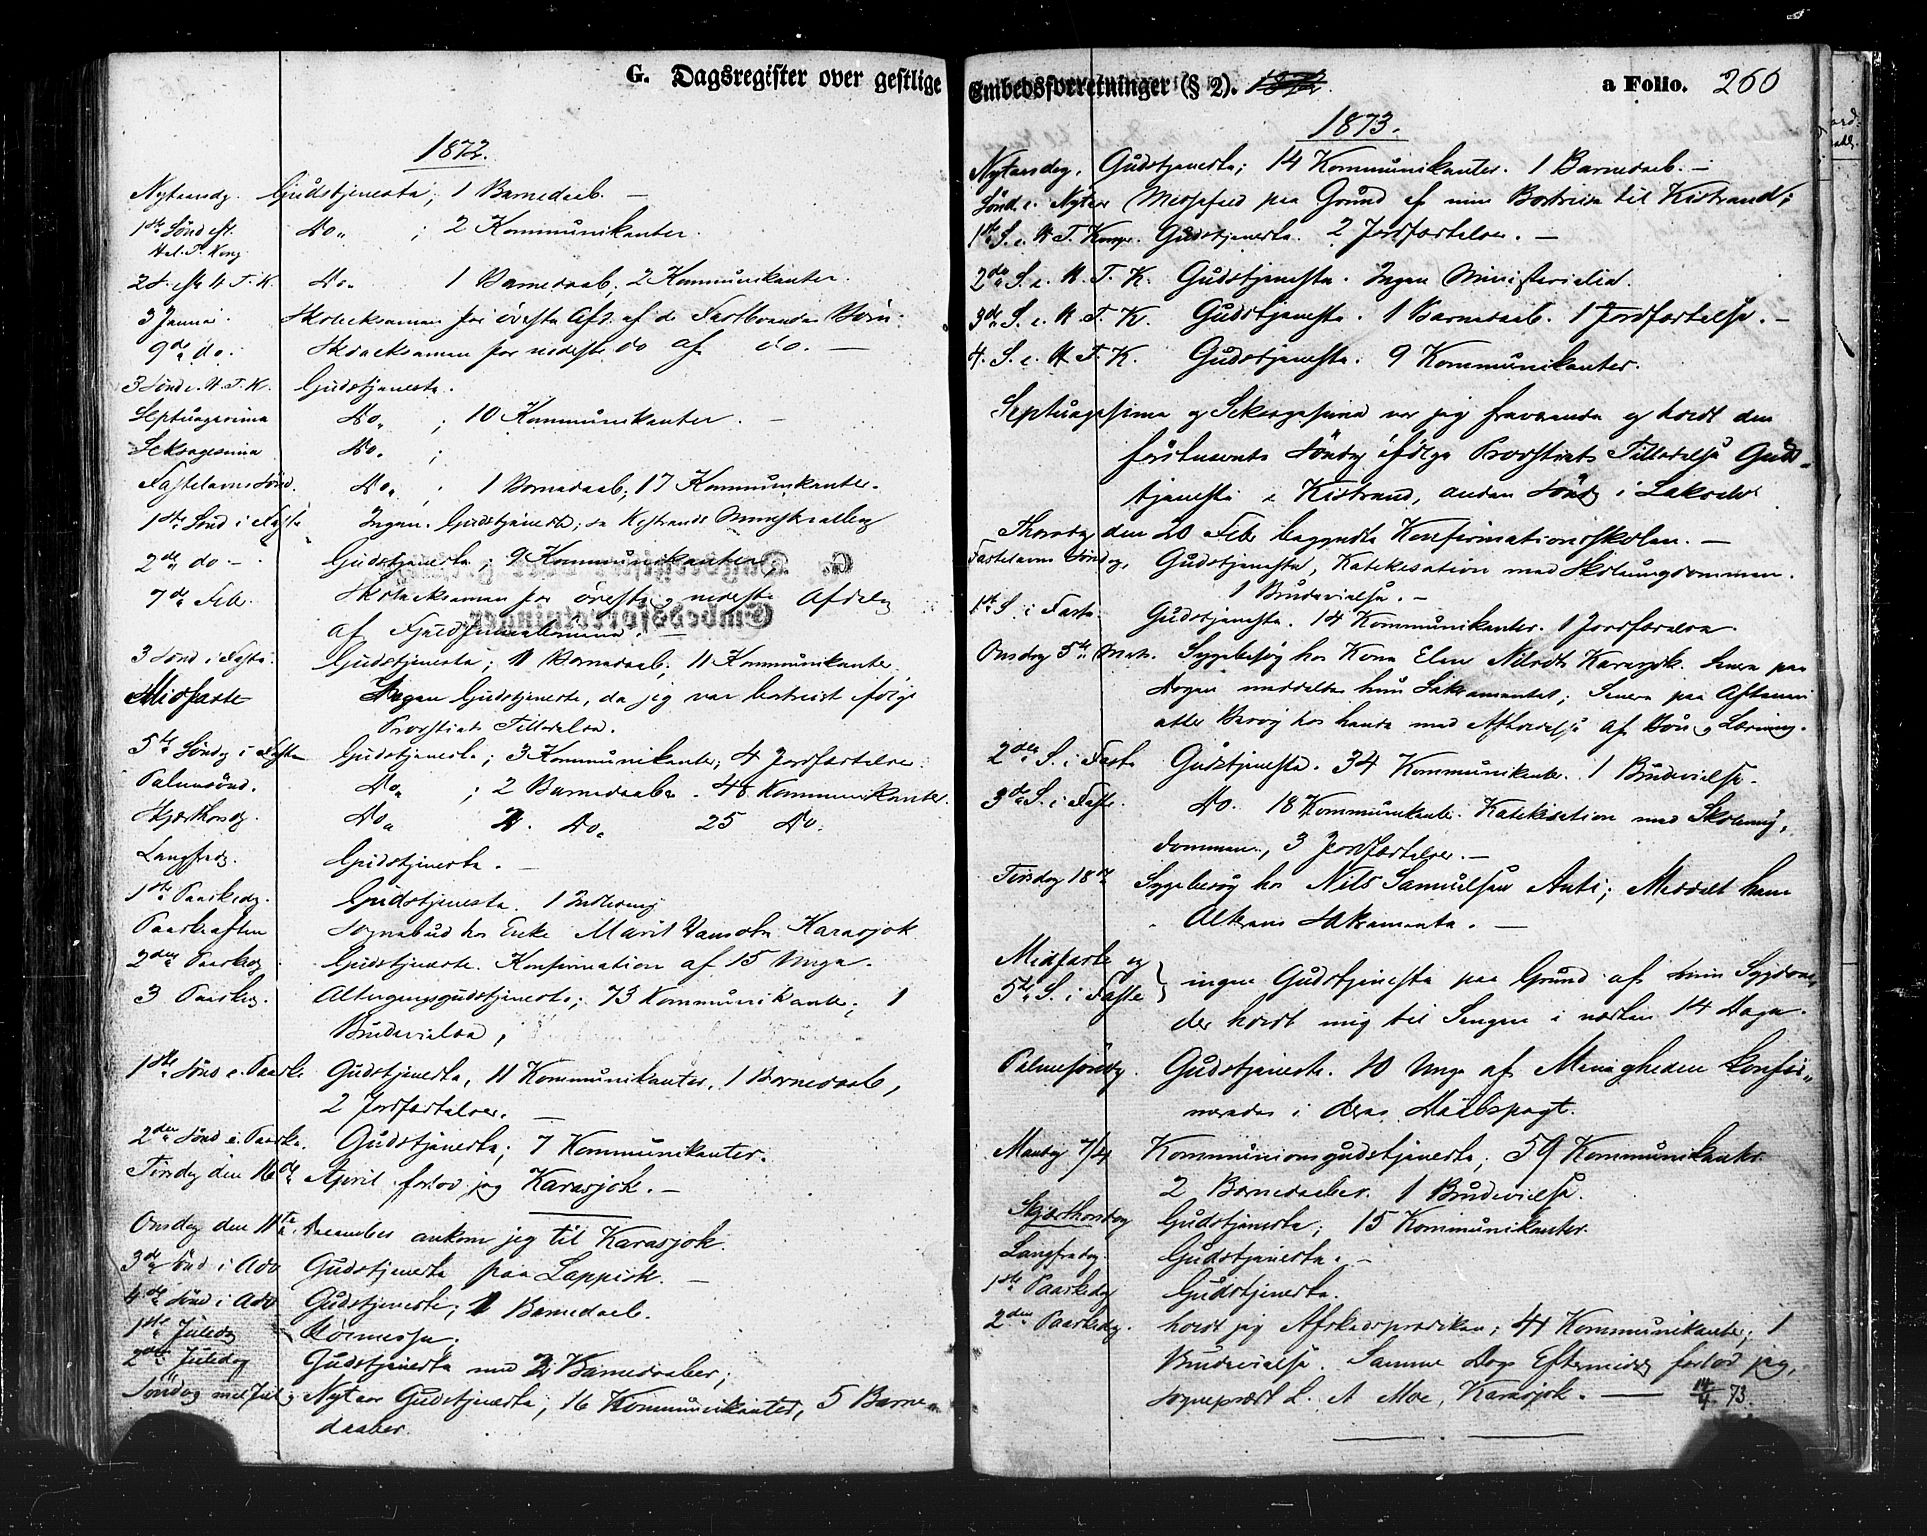 G. Dagsregister over gestlige
1872.
Nytaarsdg. Gudstjeneste; 1 Barnedaab. —
1ste Sønd eft. Do. ; 2 Kommunikanter.
Hel. T. Kong
2 S. eft H. T. K. Do. 1 Barnedaab; 2 Kommunikanter.
3 Januar. Skoleeksamen for øverste Afd. af de Fastboendes Børn.
9de do. Skoleeksamen for nederste do af do. —
3 Sønd e. H. T. K. Gudstjeneste.
Septuagesima Do. ; 10 Kommunikanter. —
Seksagesima Do. ;
Fastelavns Sønd. Do. ; 1 Barnedaab; 17 Kommunikanter.
1ste Sønd i Faste Ingen Gudstjeneste;
2den do — Gudstjeneste; 9 Kommunikanter
7de Feb. Skoleeksamen for øverste og nederste Afdelg
af
3 Sønd i Faste. Gudstjeneste; 1 Barnedaab; 11 Kommunikanter.
Midfaste Ingen Gudstjeneste, da jeg var bortreist ifølge
Provstiets Tilladelse.
5te Søndg i Fasten Gudstjeneste; 3 Kommunikanter; 4 Jordfæstelser.
Palmesønd. Do. ; 2 Barnedaaber. 48 Kommunikanter.
Skjærthorsdg. Do. 2. Do. 25 Do.
Langfredg. Gudstjeneste. —
1ste Paaskedg. Gudstjeneste. 1 Indledning
Paaskeaften Sognebud hos Enke Marit Karasjok
2den Paaskedg Gudstjeneste. Konfirmation af 15 Unge.
3 Paaskedg. Altergangsgudstjeneste; 73 Kommunikanter; 1
Brudevielse;
1ste Sønd e. Paaske Gudstjeneste, 11 Kommunikanter, 1 Barnedaab,
2 Jordfæstelser. —
2den Sønd e. Paaske. Gudstjeneste; 7 Kommunikanter.
Tirsdg den 16de April forlod jeg Karasjok. —
Onsdag den 11te December ankom jeg til Karasjok.
3de Sønd i Adv Gudstjeneste paa Lappisk. —
4de Sønd i Adv Gudstjeneste; 1 Barnedaab.
1ste Juledg
2den Juledag Gudstjeneste med 2 Barnedaaber;
Søndag mel. Jul og Nytaar Gudstjeneste; 16 Kommunikanter, 5 Barne-
daaber.
Embedsforretninger (§ 2). 1872
a Folio. 260
1873.
Nytaarsdg. Gudstjeneste; 14 Kommunikanter. 1 Barnedaab. —
Sønd. e. Nytaar Messefald paa Grund af min Bortreise til Kistrand;
1ste S. e. H. T. Konger. Gudstjeneste. 2 Jordfæstelser. —
2den S. e. H. T. K. Gudstjeneste. Ingen Ministerialia.
3die S. e. H. T. K. Gudstjeneste. 1 Barnedaab. 1 Jordfæstelse. —
4. S. e. H. T. K. Gudstjeneste. 9 Kommunikanter.
Septuagesima og Seksagesima var jeg fraværende og holdt den
førstnævnte Søndg ifølge Provstiets Tilladelse Guds-
tjeneste i Kistrand, anden Søndg i Lakselv
Thorsdg den 20 Feb. begyndte Konfirmationsskolen. —
Fastelavns Søndg, Gudstjeneste, Katekisation med Skoleungdommen.
1 Brudevielse. —
1ste S. i Faste. Gudstjeneste. 14 Kommunikanter. 1 Jordfæstelse.
Onsdag 5te Mats. Sygebesøg hos Kone Elen Nilsdtr Karasjok. Senere paa
Dagen meddeltes hun Sakramentet; Senere paa Aftenen
atter Besøg hos hende med Afholdelse af Bøn og Læsning.
2den S. i Faste Gudstjeneste. 34 Kommunikanter. 1 Brudevielse.
3die S. i Faste. Do. 18 Kommunikanter. Katekisation med Skoleung-
dommen, 3 Jordfæstelser. —
Tirsdag 18de Sygebesøg hos Nils Samuelsen Anti; Meddelt ham
Alterens Sakramente. —
Midfaste og
5te S. i Faste } ingen Gudstjeneste paa Grund af min Sygdom,
der holdt mig til Sengen i næsten 14 Dage.
Palmesøndg. Gudstjeneste. 10 Unge af Menigheden konfir-
meredes i deres Daabspagt.
Mandag 7/4 Kommunionsgudstjeneste, 59 Kommunikanter.
2 Barnedaaber. 1 Brudevielse.
Skjærthorsdag Gudstjeneste; 15 Kommunikanter.
Langfredag. Gudstjeneste. —
1ste Paaskedag Gudstjeneste.
2den Paaskedg. holdt jeg Afskedsprædiken; 41 Kommunikanter; 1
Brudevielse. Samme Dags Eftermiddg forlod jeg,
Sogneprest L. A Moe, Karasjok. — 14/4 73.